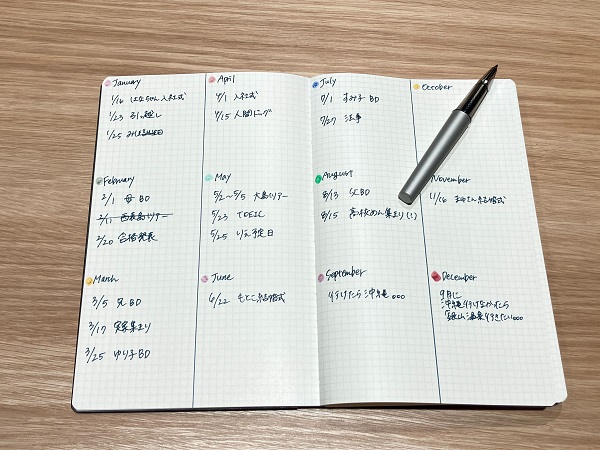 January
1/16 はなちゃん 入社式
1/23 引っ越し
1/25
February
2/1 母 BD
2/11 西表島ツアー
2/20 合格発表
March
3/5 兄 BD
3/17 実家集まり
3/25 ゆり子 BD
April
4/1 入社式
4/15 人間ドッグ
May
5/2〜5/5 大島ツアー
5/23 TOEIC
5/25 りえ予定日
June
6/22 もとこ結婚式
July
7/1 すみ子 BD
7/27 法事
August
8/13 BD
8/15 高校めん集まり(!)
September
行けたら沖縄。。。
October
November
11/16 結婚式
December
9月に
沖縄行けなかったら
銀山温泉行きたい。。。